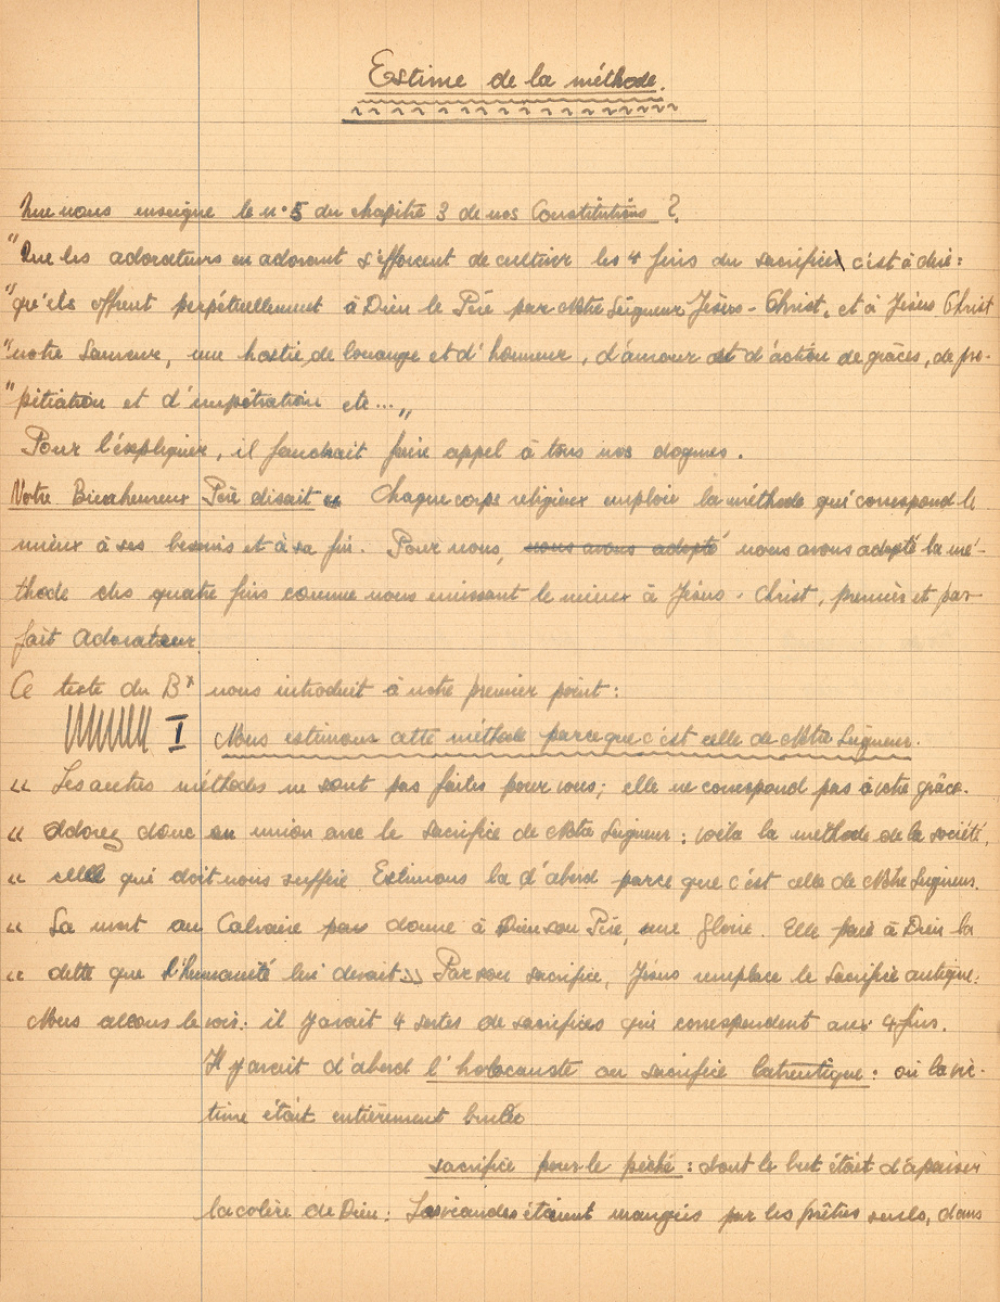 Estime de la méthode.
Que nous enseigne le n° 5 du chapitre 3 de nos Constitutions ?
"Que les adorateurs en adorant s'efforcent de cultiver les 4 fins du sacrifice c'est à dire :
"qu'ils offrent perpétuellement à Dieu le Père par Notre Seigneur Jésus-Christ, et à Jésus Christ
"notre Sauveur, une hostie de louange et d'honneur, d'amour et d'action de grâces, de pro-
"pitiation et d'impétration etc..."
Pour l'expliquer, il faudrait faire appel à tous nos dogmes.
Notre Bienheureux Père disait « Chaque corps religieux emploie la méthode qui correspond le
mieux à ses besoins et à sa fin. Pour nous, nous avons adopté nous avons adopté la mé-
thode des quatre fins comme nous unissant le mieux à Jésus-Christ, premier et par-
fait adorateur.
Ce texte du Bx nous introduit à notre premier point :
I Nous estimons cette méthode parce que c'est celle de Notre Seigneur.
« Les autres méthodes ne sont pas faites pour vous ; elle ne correspond pas à votre grâce.
« Adorez donc en union avec le sacrifice de Notre Seigneur : voilà la méthode de la société,
« celle qui doit nous suffire. Estimons la d'abord parce que c'est celle de Notre Seigneur.
« Sa mort au Calvaire donne à Dieu son Père, une Gloire. Elle paie à Dieu la
« dette que l'humanité lui devait » Par son sacrifice, Jésus remplace le sacrifice antique.
Nous allons le voir : il y avait 4 sortes de sacrifices qui correspondent aux 4 fins.
Il y avait d'abord l'holocauste ou sacrifice latreutique : où la vic-
time était entièrement brulée
sacrifice pour le péché : dont le but était d'apaiser
la colère de Dieu : Les viandes étaient mangées par les prêtres seuls, dans